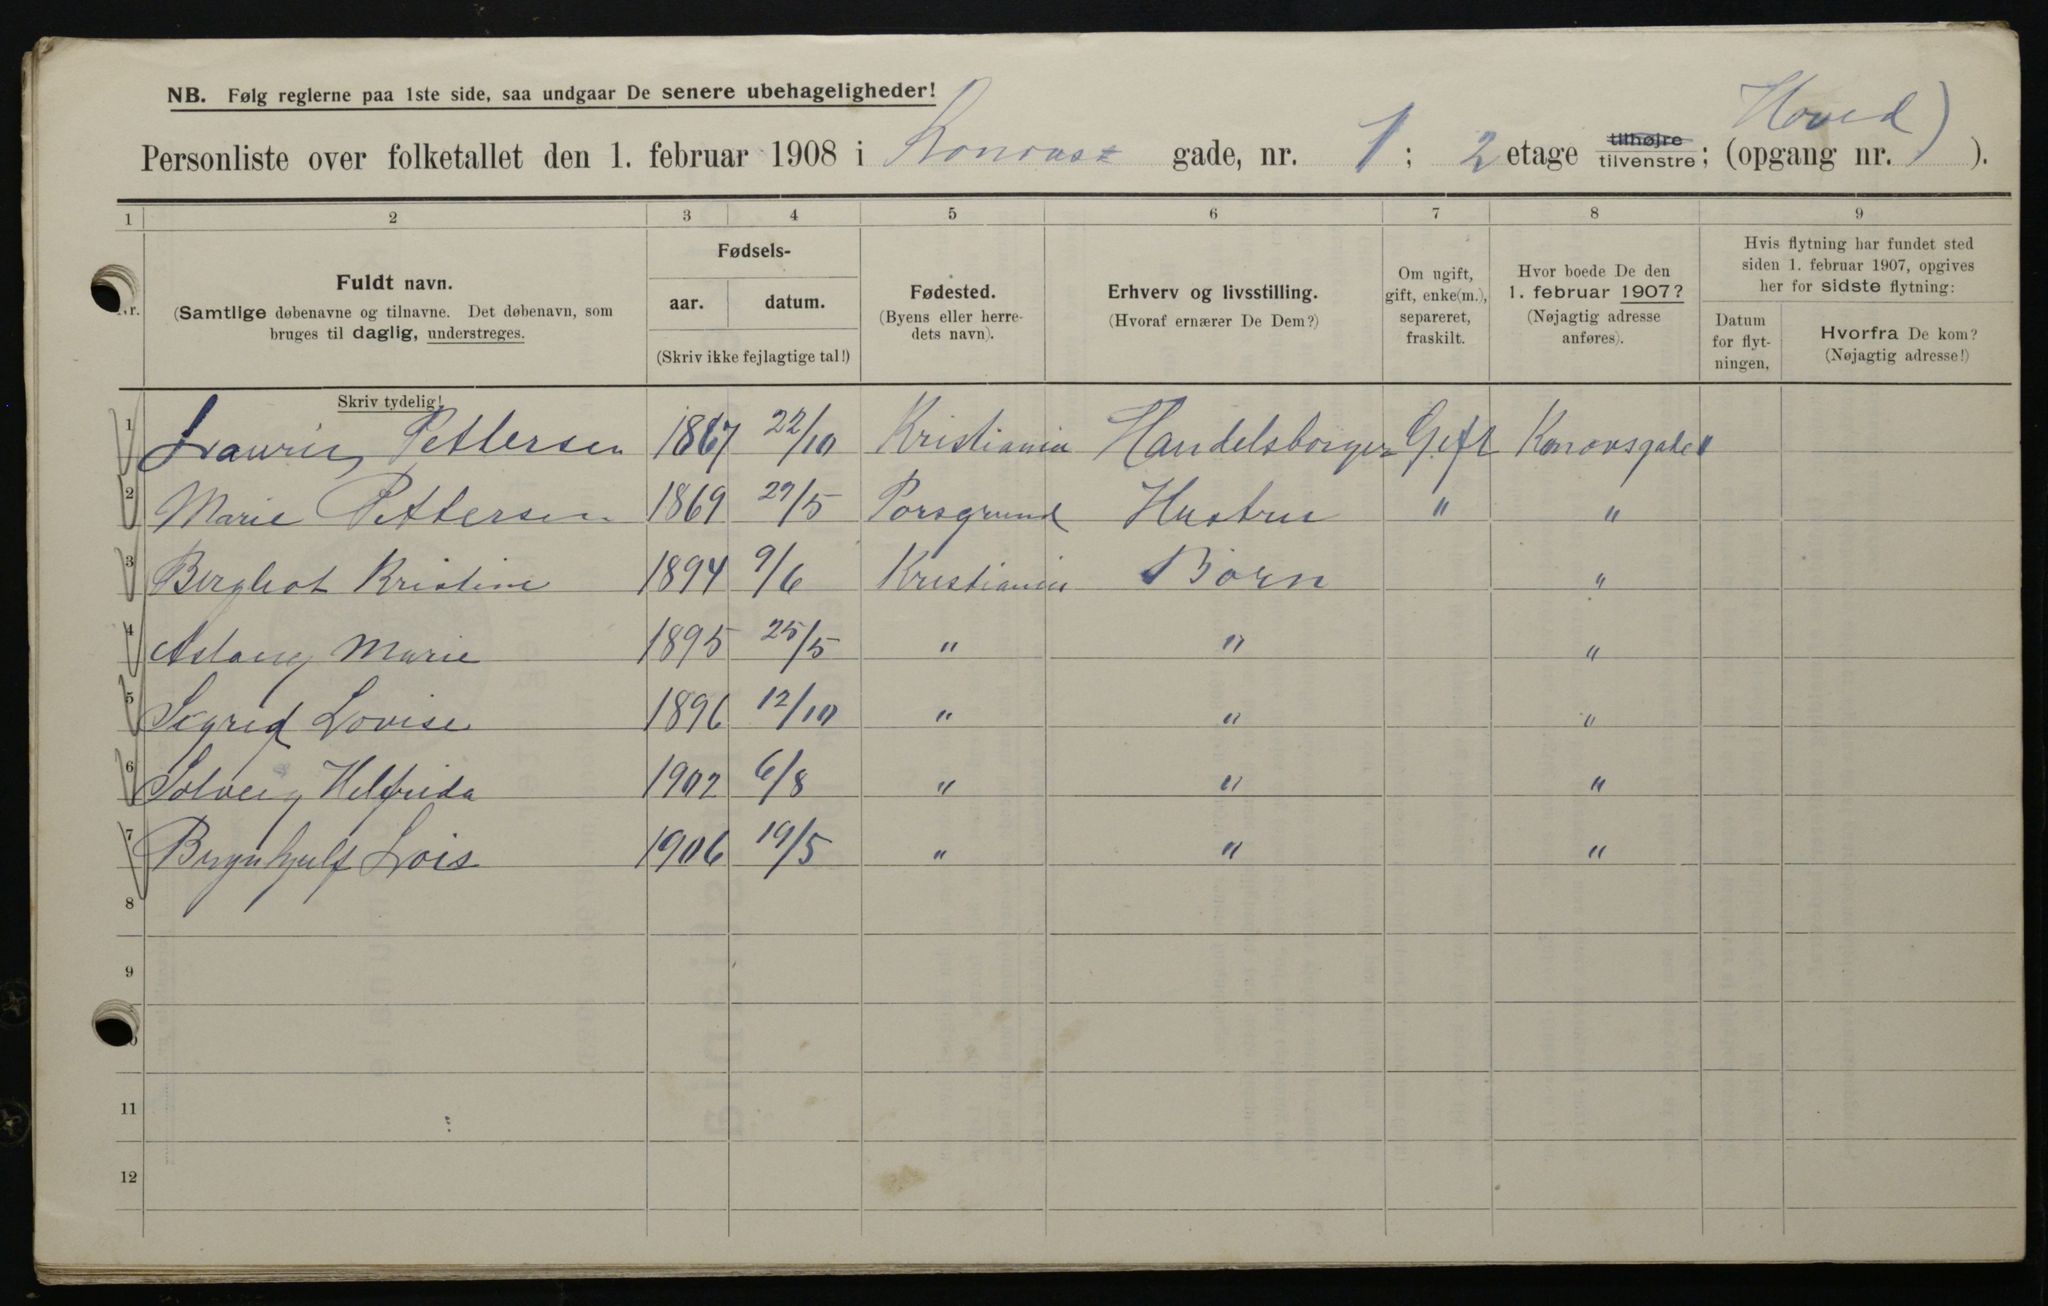 NB. Følg reglerne paa 1ste side, saa undgaar De senere ubehageligheder!
Hoved
Personliste over folketallet den 1. februar 1908 i Konows gade, nr. 1; 2 etage tilhøjre tilvenstre; (opgang nr. ).
1 2 3 4 5 6 7 8 9
Nr.
Fuldt navn.
(Samtlige døbenavne og tilnavne. Det døbenavn, som
bruges til daglig, understreges.
Skriv tydelig!
Fødsels-
aar. datum.
(Skriv ikke fejlagtige tal!)
Fødested.
(Byens eller herre-
dets navn).
Erhverv og livsstilling.
(Hvoraf ernærer De Dem?)
Om ugift,
gift, enke(m.),
separeret,
fraskilt.
Hvor boede De den
1. februar 1907?
(Nøjagtig adresse
anføres).
Hvis flytning har fundet sted
siden 1. februar 1907, opgives
her for sidste flytning:
Datum
for flyt-
ningen,
Hvorfra De kom?
(Nøjagtig adresse!)
1 Lauritz Pettersen 1867 22/10 Kristiania Handelsborger Gift Konovsgade 1
2 Marie Pettersen 1869 29/5 Porsgrund Hustru " "
3 Bergliot Kristine 1894 9/6 Kristiania Börn "
4 Aslaug Marie 1895 25/5 " " "
5 Sigrid Lovise 1896 12/10 " " "
6 Solveig Helfrida 1902 6/8 " " "
7 Brynhjulf Lois 1906 19/5 " " "
8
9
11
12